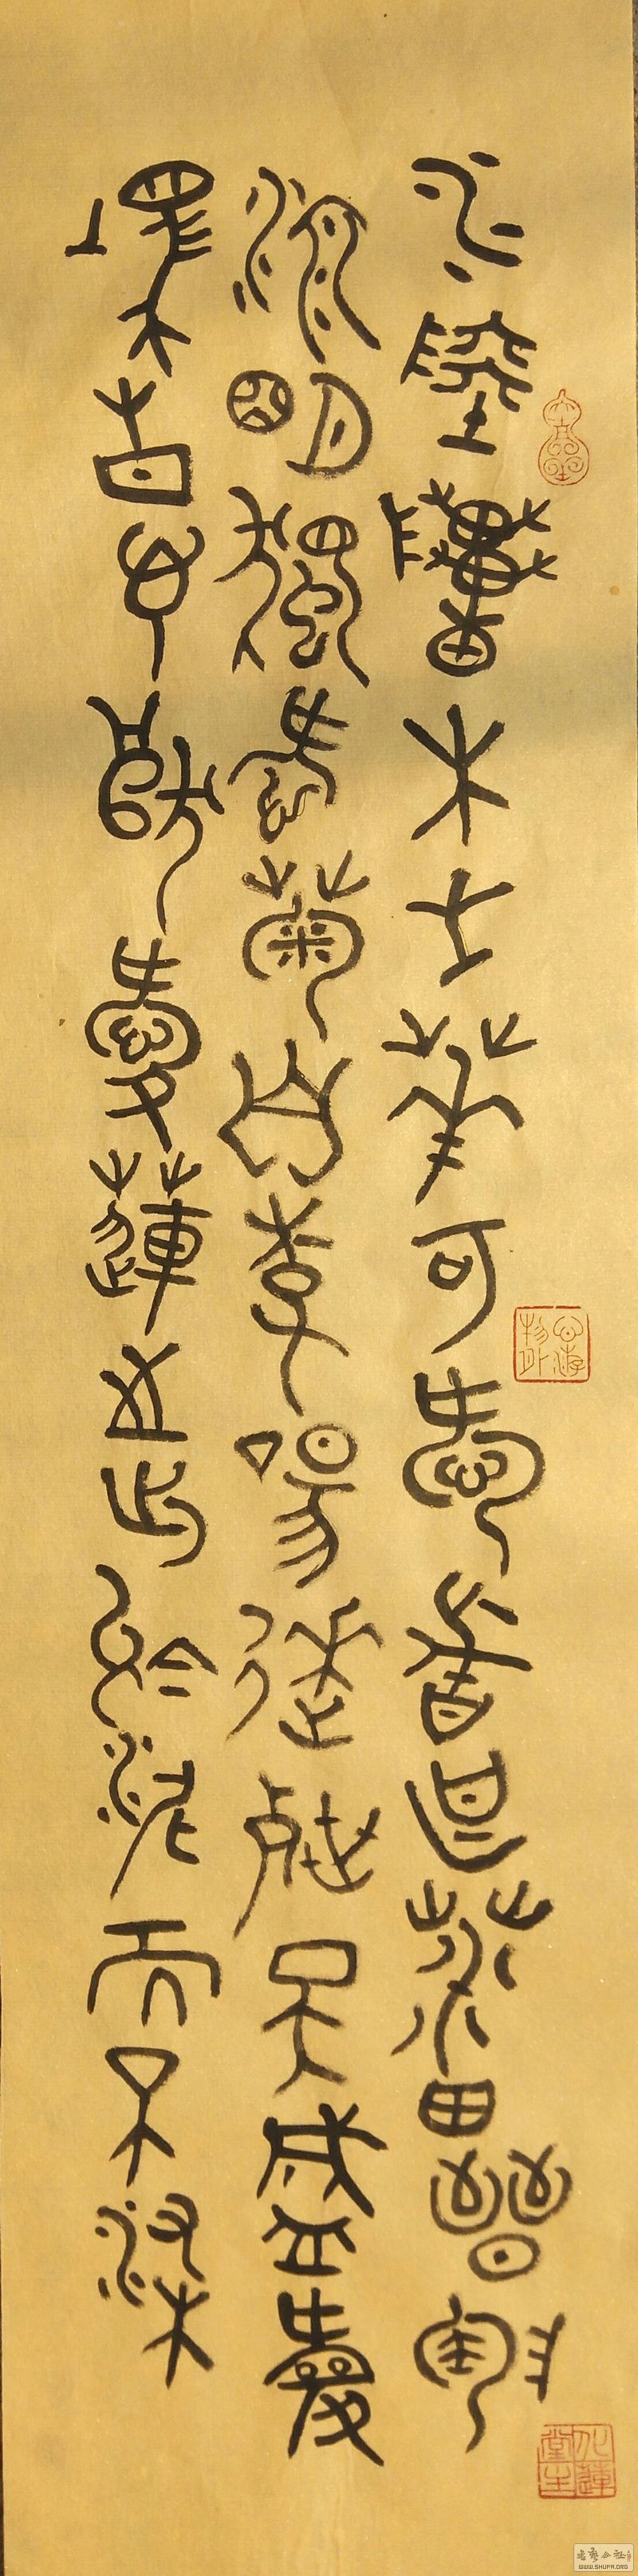 水陸草木之華可愛者甚蕃晉陶
淵明獨愛菊自李唐來世人盛愛
牡丹予獨愛蓮之出於泥而不染
WWW.SHUFA.ORG